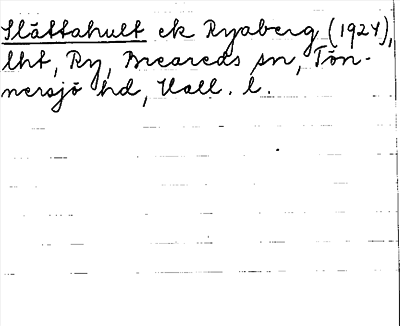 Slättahult ek Ryaberg (1924),
lht, Ry, Breareds sn, Tön-
nersjö hd, Hall. l.